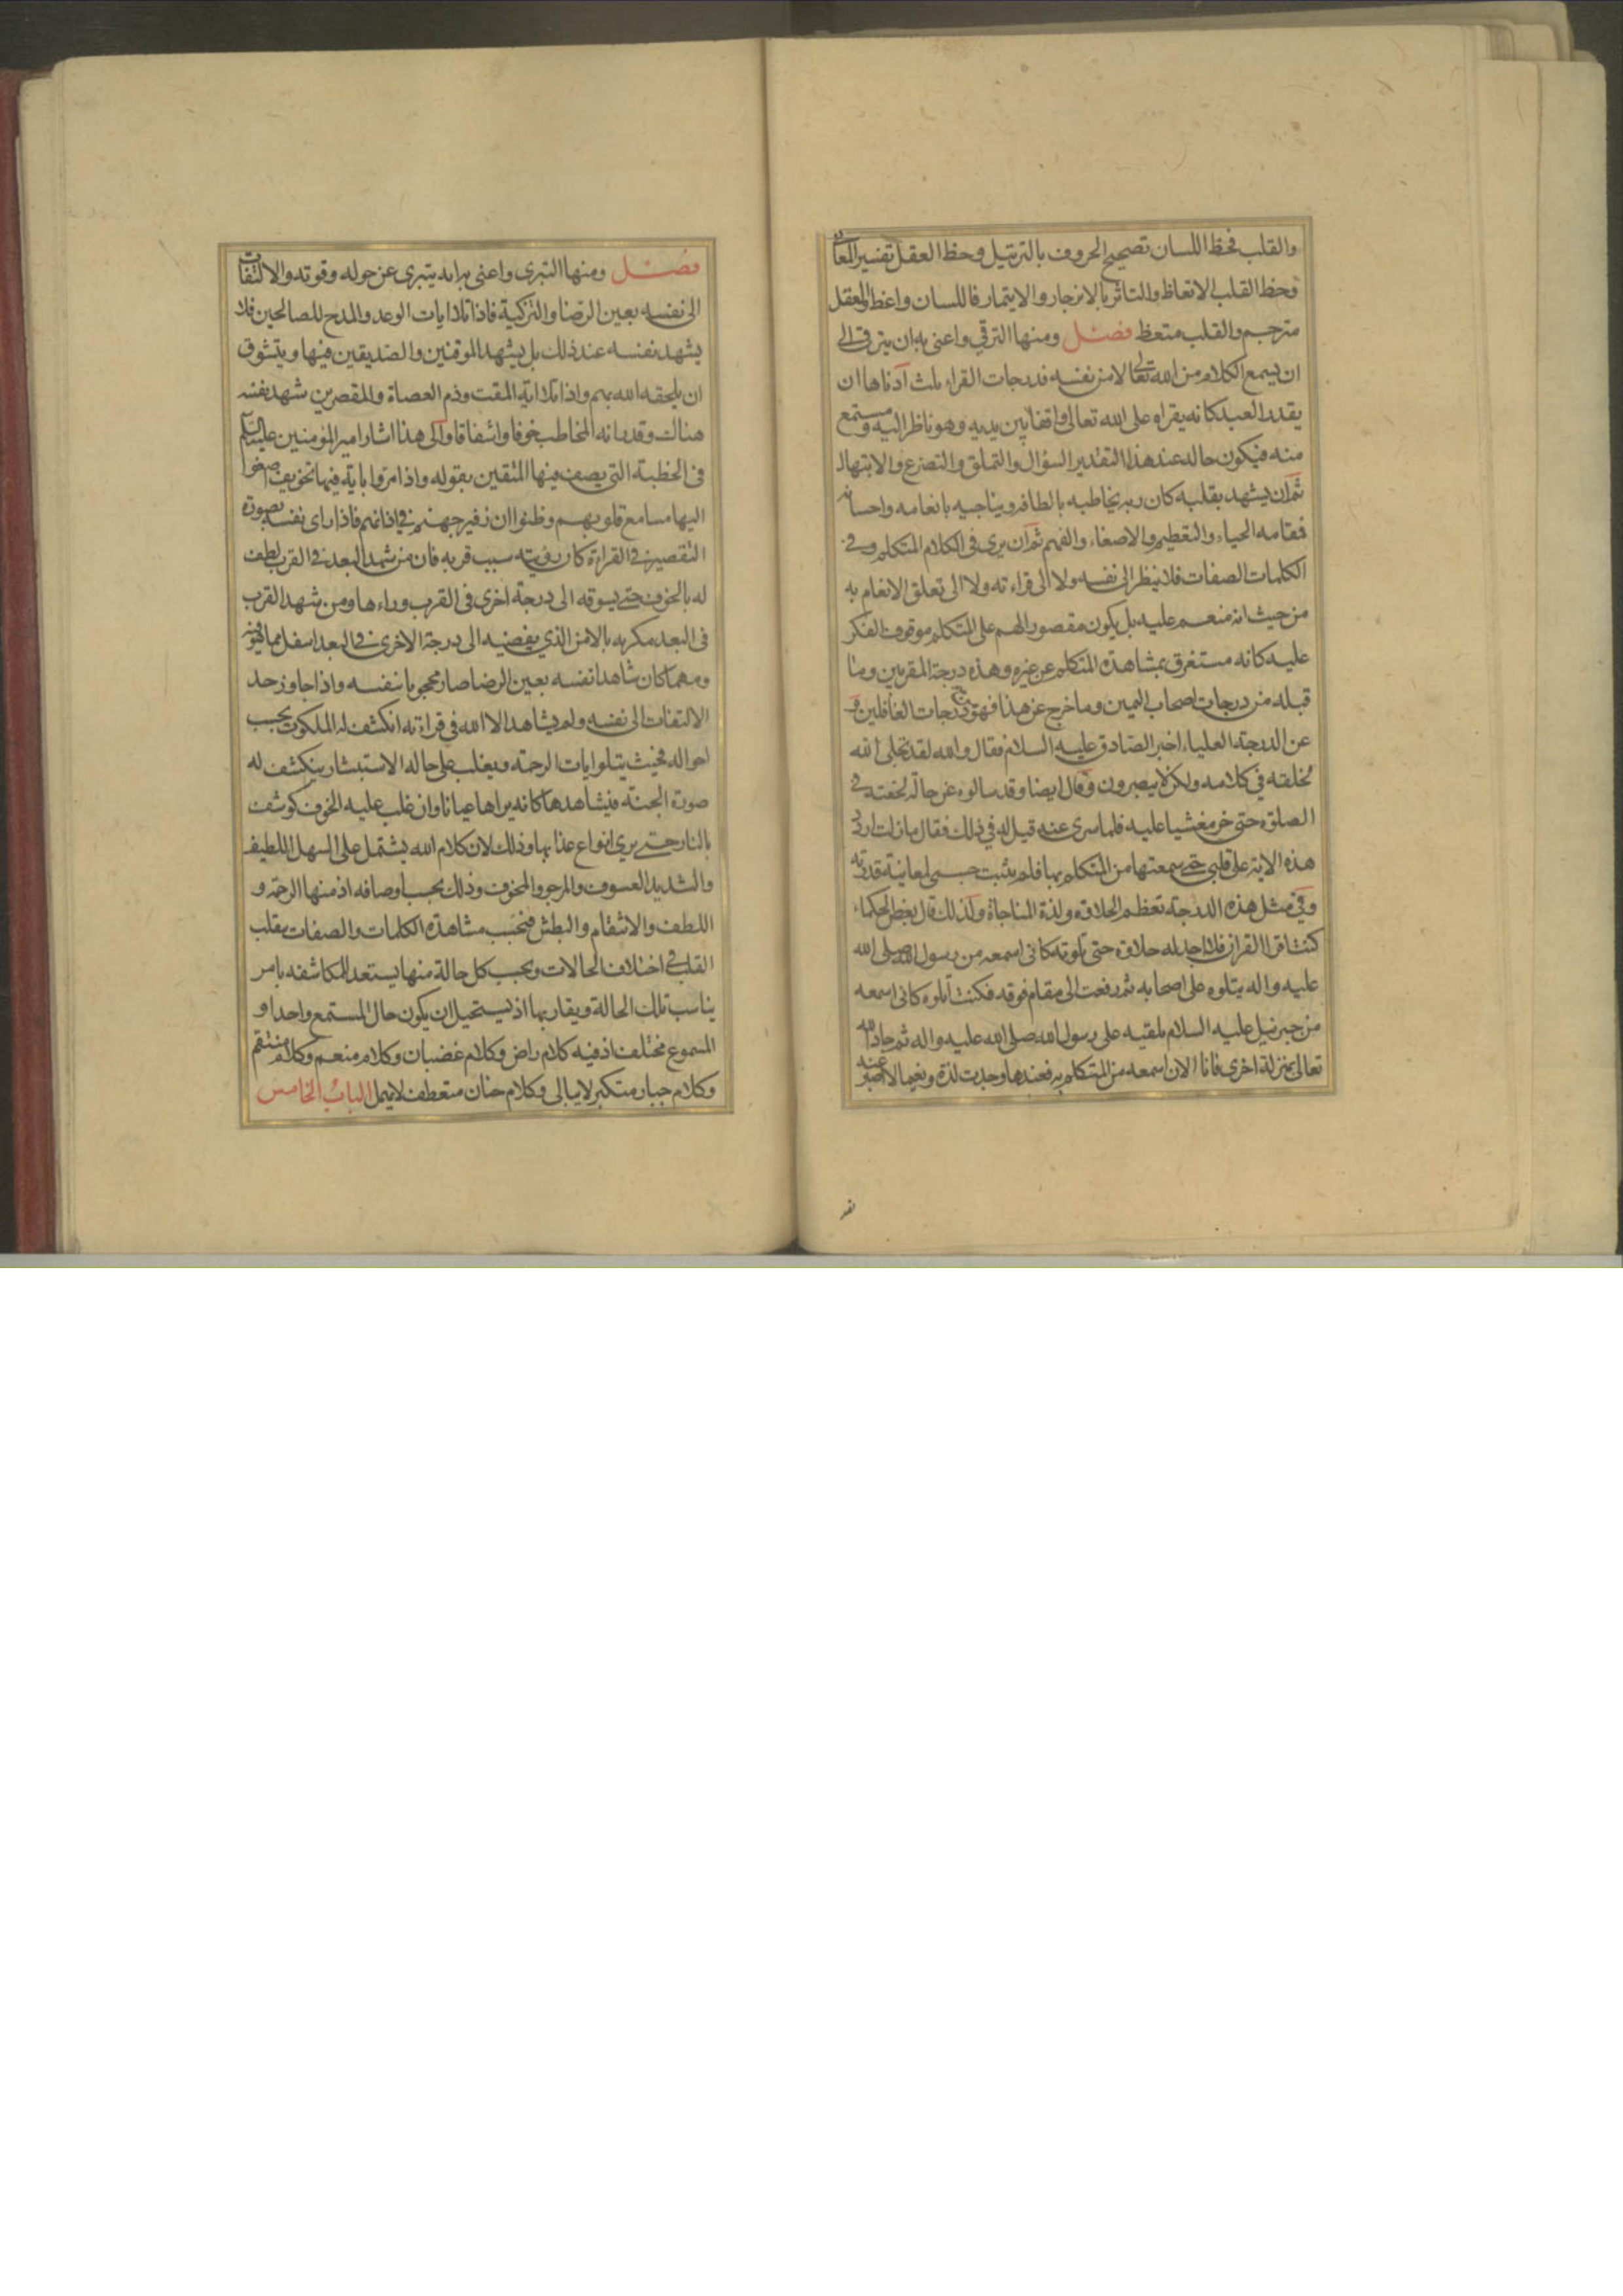 والقلب فحظ اللسان تصحيح الحروف بالترتيل وحظ العقل تفسير المعانى
وحظ القلب الاتعاظ والتاثر بالانزجار والايتمار فاللسان واعظ والعقل
مترجم والقلب متعظ فصل ومنها الترقي واعنى به ان يترقى الى
ان يسمع الكلام من الله تعالى لا من نفسه فدرجات القراءة ثلث ادناها ان
يقدر العبد كانه يقراه على الله تعالى واقفا بين يديه وهو ناظر اليه ومستمع
منه فيكون حاله عند هذا التقدير السؤال والتملق والتضرع والابتهال
ثم ان يشهد بقلبه كان ربه يخاطبه بالطافه ويناجيه بانعامه واحسانه
فمقامه الحياء والتعظيم والاصغاء والفهم ثم ان يرى فى الكلام المتكلم وفي
الكلمات الصفات فلا ينظر الى نفسه ولا الى قراءته ولا الى تعلق الانعام به
من حيث انه منعم عليه بل يكون مقصور الهم على المتكلم موقوف الفكر
عليه كانه مستغرق بمشاهدة المتكلم عن غيره وهذه درجة المقربين وما
قبله من درجات اصحاب اليمين وما خرج عن هذا فهو درجات الغافلين و
عن الدرجة العلياء اخبر الصادق عليه السلام فقال والله لقد تجلى الله
لخلقه في كلامه ولكن لا يبصرون وقال ايضا وقد سالوه عن حالة لحقته في
الصلوة حتى خر مغشيا عليه فلما سرى عنه قيل له في ذلك فقال ما زلت اردد
هذه الاية على قلبي حتى سمعتها من المتكلم بها فلم يثبت جسمى لمعاينة قدرته
وفي مثل هذه الدرجة تعظم الحلاوة ولذة المناجاة ولذلك قال بعض الحكماء
كنت اقرا القران فلا اجد له حلاوة حتى تلوته كانى اسمعه من رسول الله صلى الله
عليه واله يتلوه على اصحابه ثم رفعت الى مقام فوقه فكنت اتلوه كانى اسمعه
من جبرئيل عليه السلام يلقيه على رسول الله صلى الله عليه واله ثم جاء الله
تعالى بمنزلة اخرى فانا الان اسمعه من المتكلم به فعندها وجدت لذة ونعيما لا اصبر عنه
فصل ومنها التبرى واعنى به انه يتبرى عن حوله وقوته والالتفات
الى نفسه بعين الرضا والتزكية فاذا تلا ايات الوعد والمدح للصالحين فلا
يشهد نفسه عند ذلك بل يشهد الموقنين والصديقين فيها ويتشوق
ان يلحقه الله بهم واذا تلا اية المقت وذم العصاة والمقصرين شهد نفسه
هناك وقدر انه المخاطب خوفا واشفاقا والى هذا اشار امير المؤمنين عليه السلم
فى الخطبة التى يصف فيها المتقين بقوله واذا مروا باية فيها تخويف اصغوا
اليها مسامع قلوبهم وظنوا ان زفير جهنم في اذانهم فاذا راى نفسه بصورة
التقصير في القراءة كان رؤيته سبب قربه فان من شهد البعد في القرب لطف
له بالخوف حتى يسوقه الى درجة اخرى فى القرب وراءها ومن شهد القرب
فى البعد مكر به بالامن الذي يفضيه الى درجة الاخرى في البعد اسفل مما هو فيه
ومهما كان شاهدا نفسه بعين الرضا صار محجوبا بنفسه واذا جاوز حد
الالتفات الى نفسه ولم يشاهد الا الله فى قراءته انكشف له الملكوت بحسب
احواله فحيث يتلو ايات الرحمة ويغلب على حاله الاستبشار ينكشف له
صورة الجنة فيشاهدها كانه يراها عيانا وان غلب عليه الخوف كوشف
بالنار حتى يرى انواع عذابها وذلك لان كلام الله يشتمل على السهل اللطيف
والشديد العسوف والمرجو والمخوف وذلك بحسب اوصافه اذ منها الرحمة و
اللطف والانتقام والبطش فبحسب مشاهدة الكلمات والصفات يقلب
القلب في اختلاف الحالات وبحسب كل حالة منها يستعد للمكاشفه بامر
يناسب تلك الحالة ويقاربها اذ يستحيل ان يكون حال المستمع واحدا و
المسموع مختلف اذ فيه كلام راض وكلام غضبان وكلام منعم وكلام منتقم
وكلام جبار متكبر لا يبالى وكلام حنان متعطف لا يهمل الباب الخامس